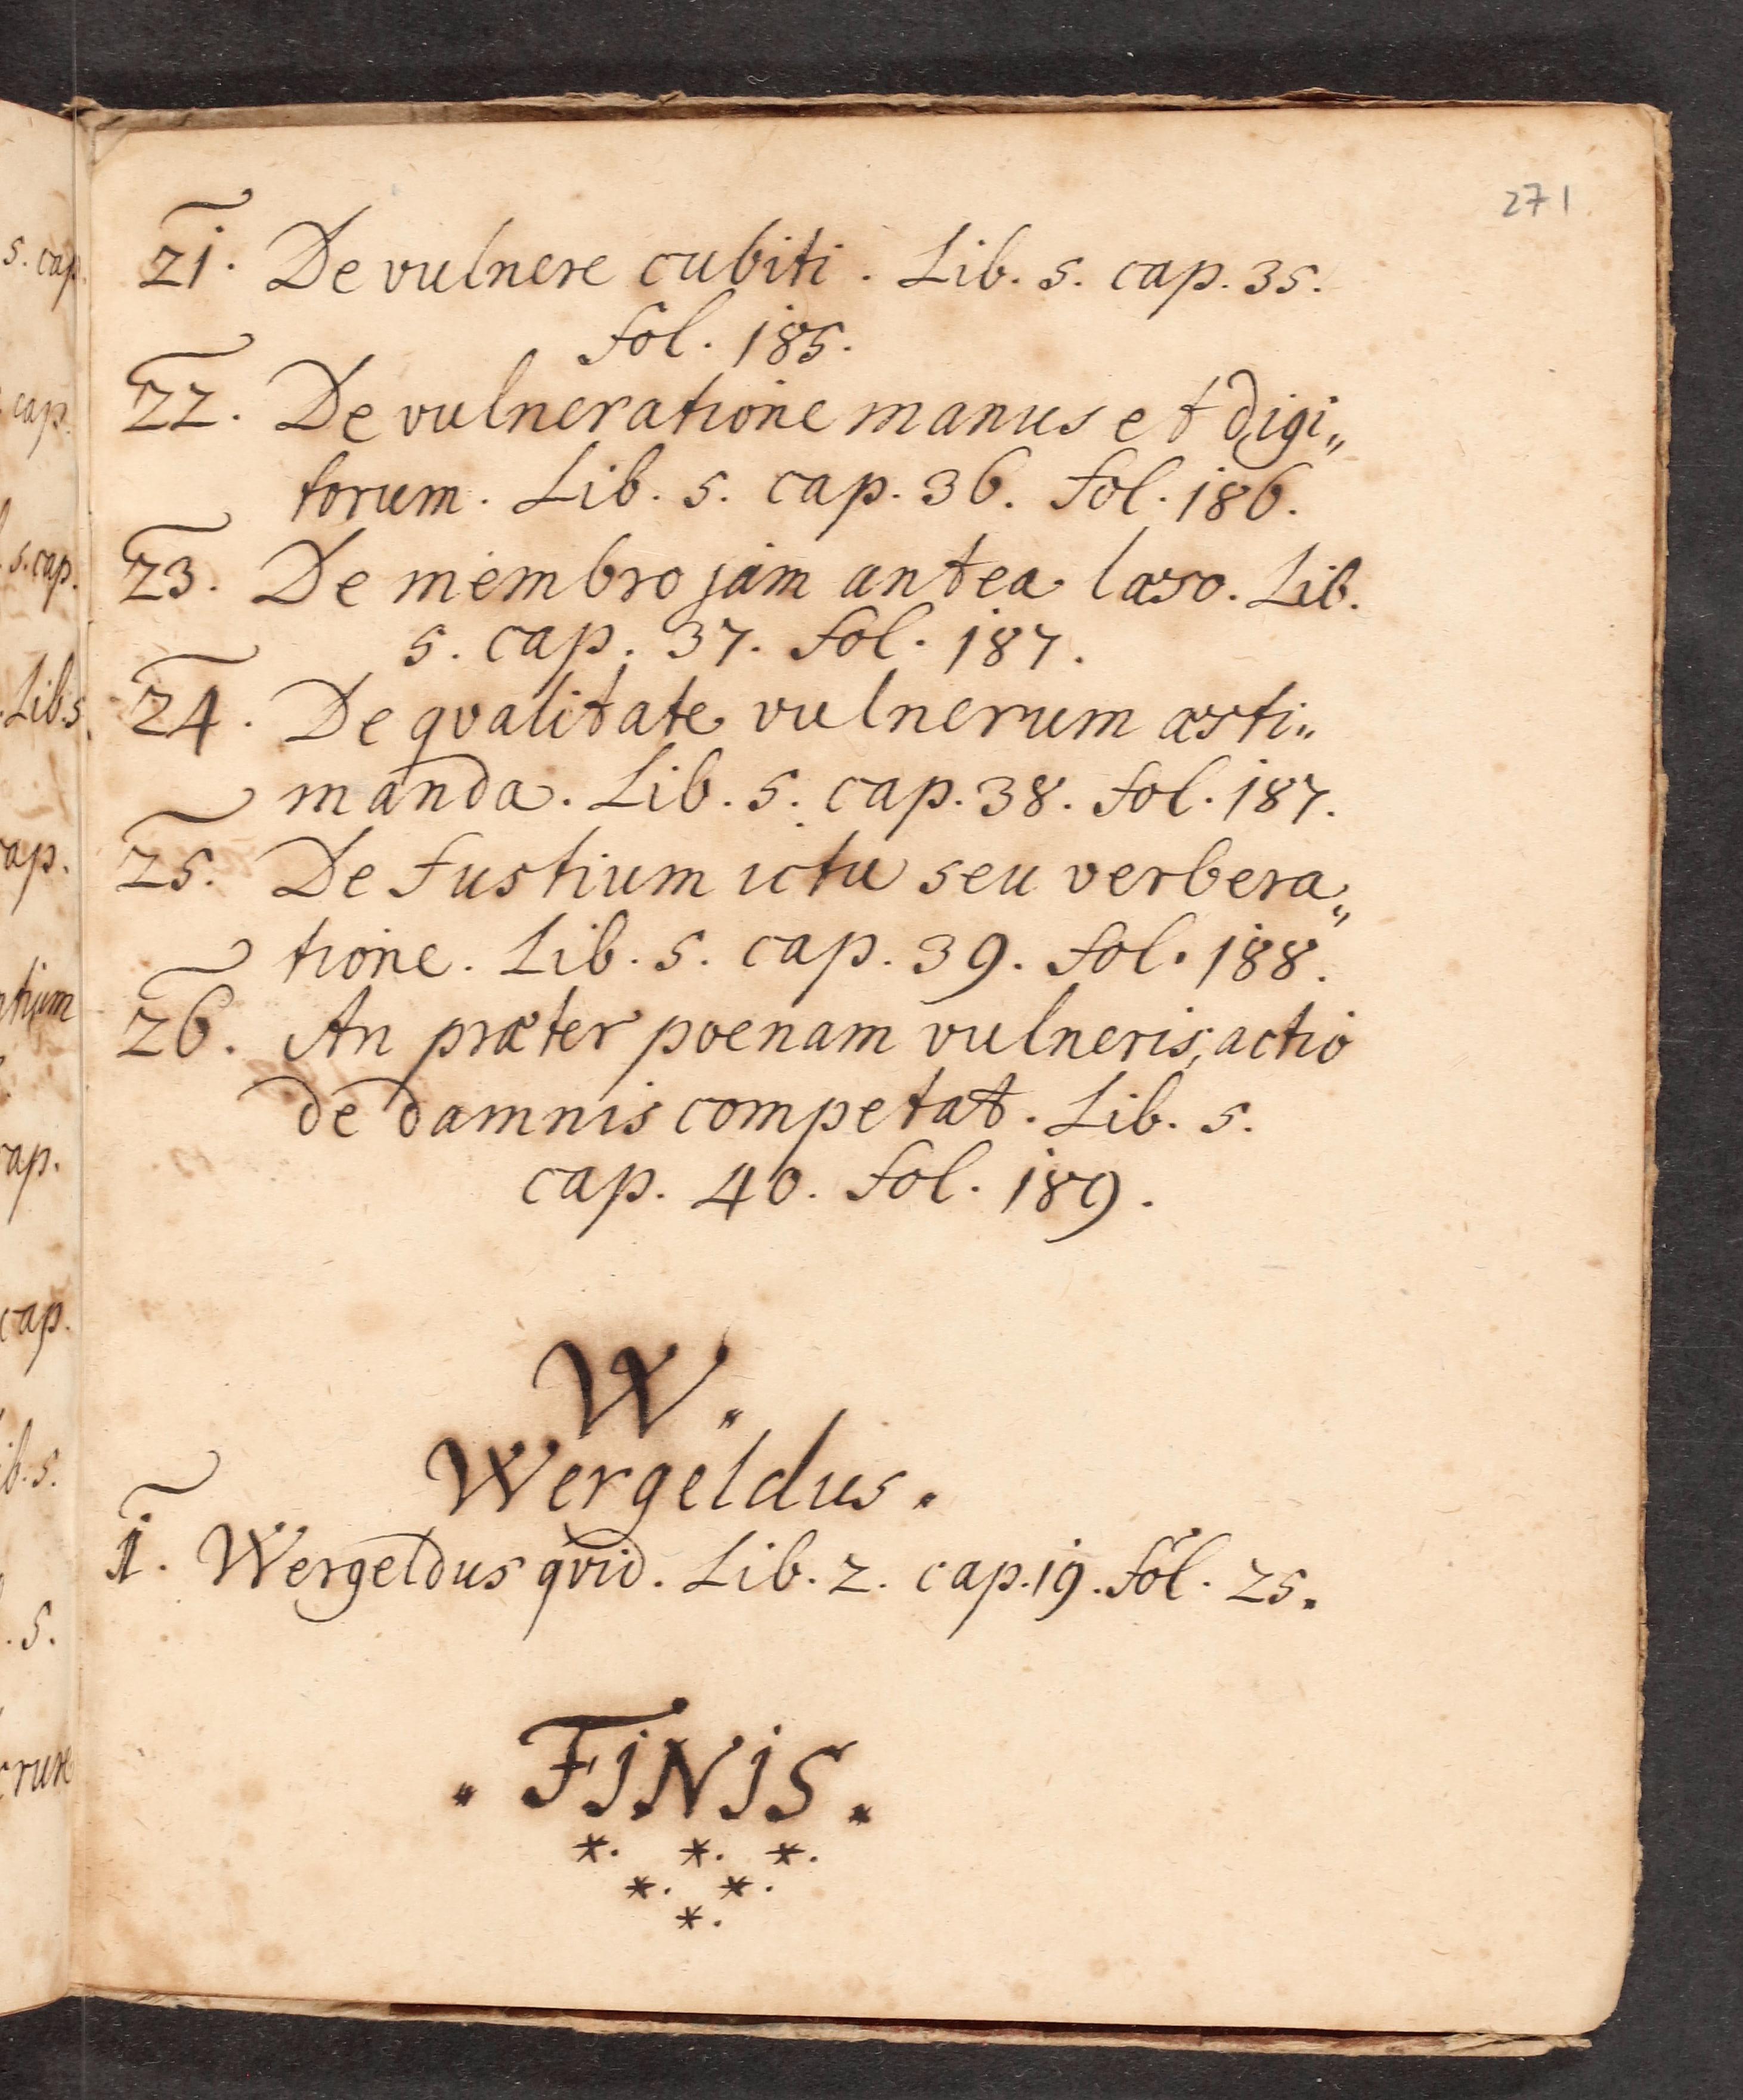 271
21. De vulnere cubiti. Lib. 5. cap. 35.
fol. 185.
22. De vulneratione manus et digi„
torum. Lib. 5. cap. 36. fol. 186.
23. De membro jam antea læso. Lib.
5. cap. 37. fol. 187.
24. De qvalitate vulnerum æsti„
manda. Lib. 5. cap. 38. fol. 187.
25. De fustium ictu seu verbera„
tione. Lib. 5. cap. 39. fol. 188.
26. An præter poenam vulneris, actio
de damnis competat. Lib. 5.
cap. 40. fol. 189.
W.
Wergeldus.
1. Wergeldus qvid. Lib. 2. cap. 19. fol. 25.
. FINIS.
*. *. *.
*. *.
*.